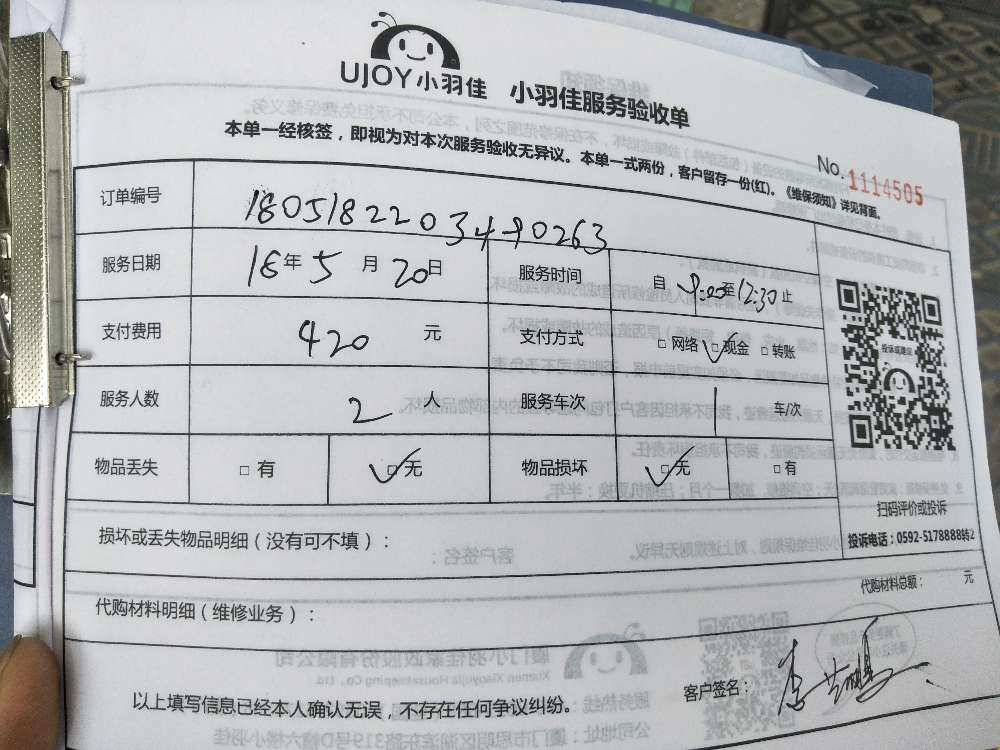 UJOY小羽佳 小羽佳服务验收单
本单一经核签，即视为对本次服务验收无异议。本单一式两份，客户留存一份(红)。《维保须知》详见背面。
No.1114505
订单编号 1805182203490263
服务日期 18年5月20日 服务时间 自9:00至12:30止
支付费用 420元 支付方式 □网络 ☑现金 □转账
服务人数 2人 服务车次 1车/次
物品丢失 □有 ☑无 物品损坏 ☑无 □有
投诉或建议
扫码评价或投诉
投诉电话：0592-5178888转2
损坏或丢失物品明细（没有可不填）：
代购材料明细（维修业务）：
代购材料总额： 元
以上填写信息已经本人确认无误，不存在任何争议纠纷。
客户签名：